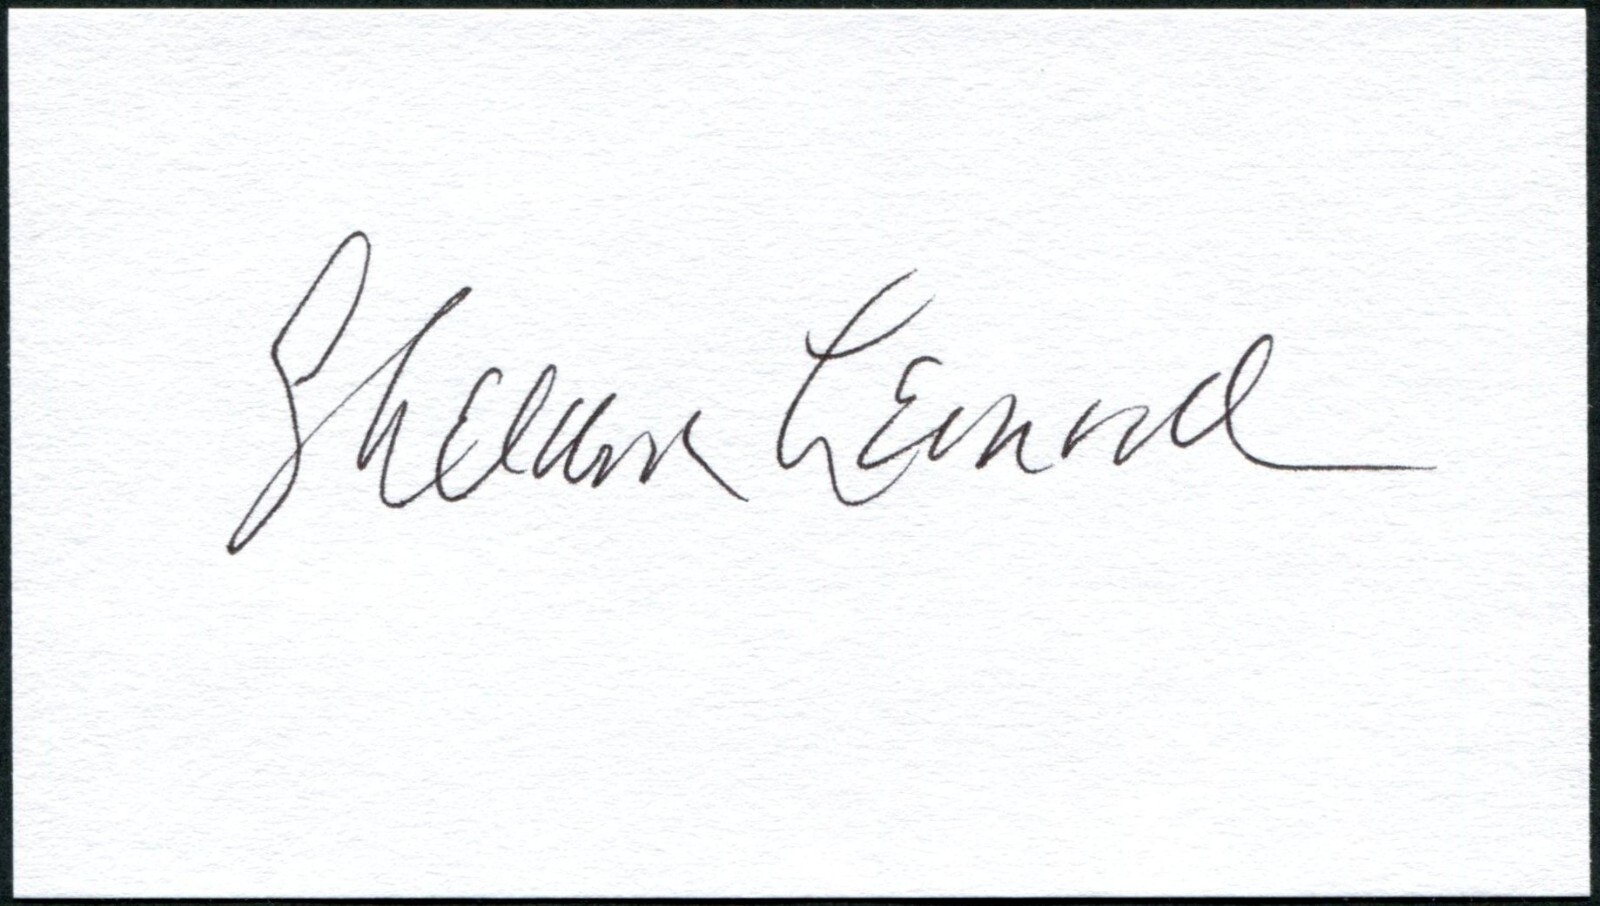 Sheldon Leonard